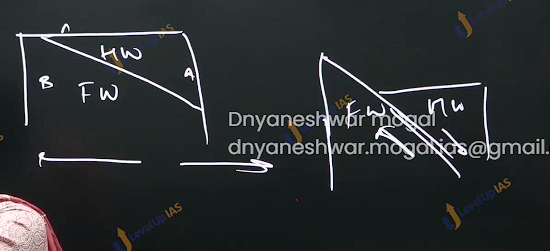 HW
B
A
FW
FW
HW
Dnyaneshwar mogal
dnyaneshwar.mogal.ias@gmail.
LevelUp IAS
LevelUp IAS
LevelUp IAS
LevelUp IAS